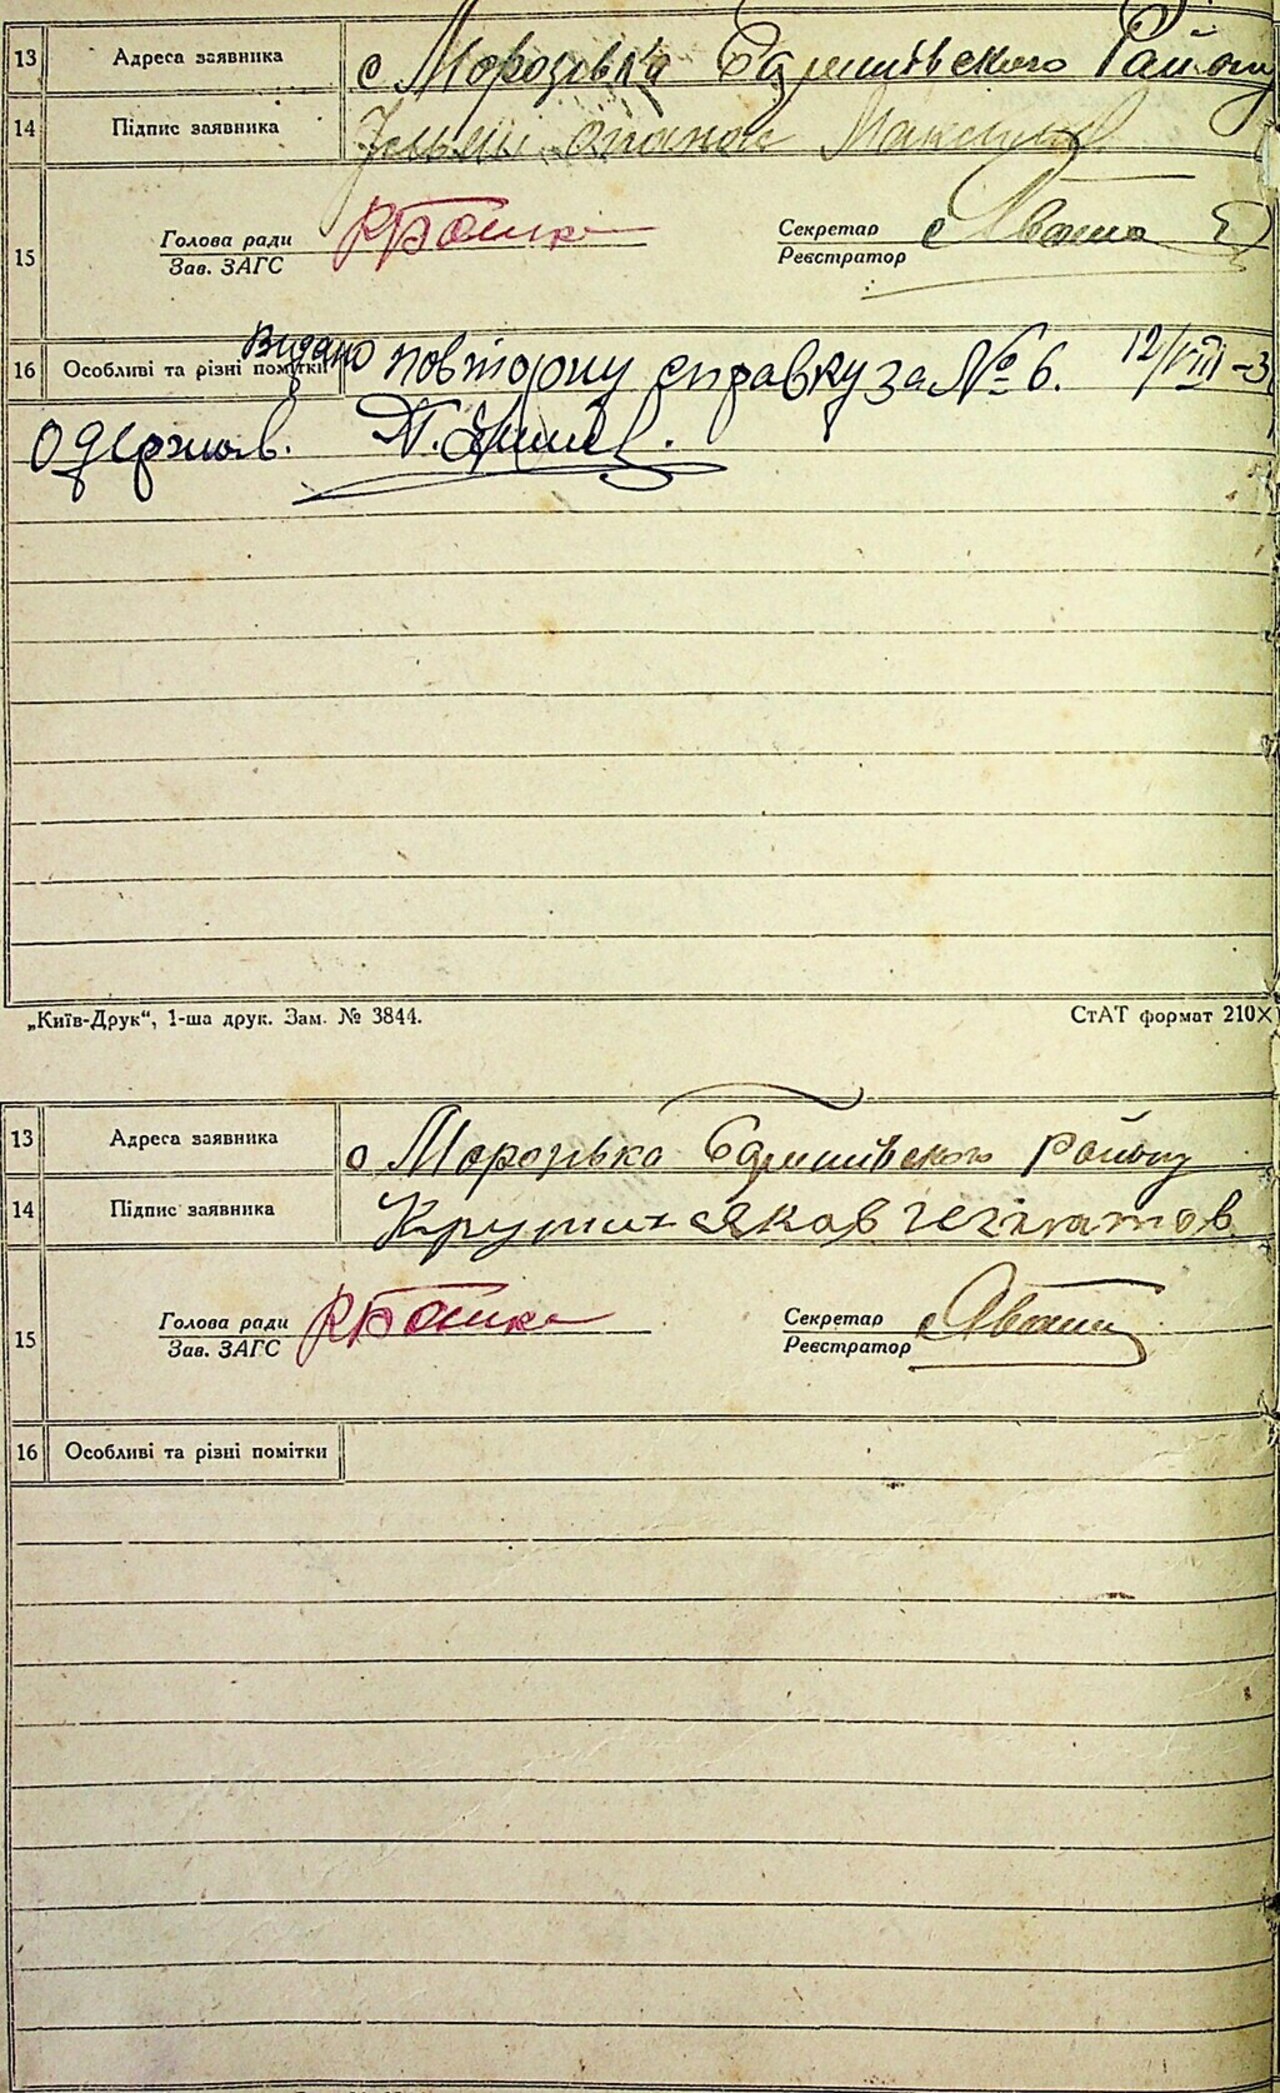 13 Адреса заявника с Морозівка Баришівського Району
14 Підпис заявника Опанас Максим
15 Голова ради Зав. ЗАГС Секретар Реєстратор
16 Особливі та різні помітки Видано повторну справку за № 6. 12/VIII-3
одержав.
„Київ-Друк“, 1-ша друк. Зам. № 3844. СтАТ формат 210X
13 Адреса заявника с Морозівка Баришівського району
14 Підпис заявника Яков
15 Голова ради Зав. ЗАГС Секретар Реєстратор
16 Особливі та різні помітки